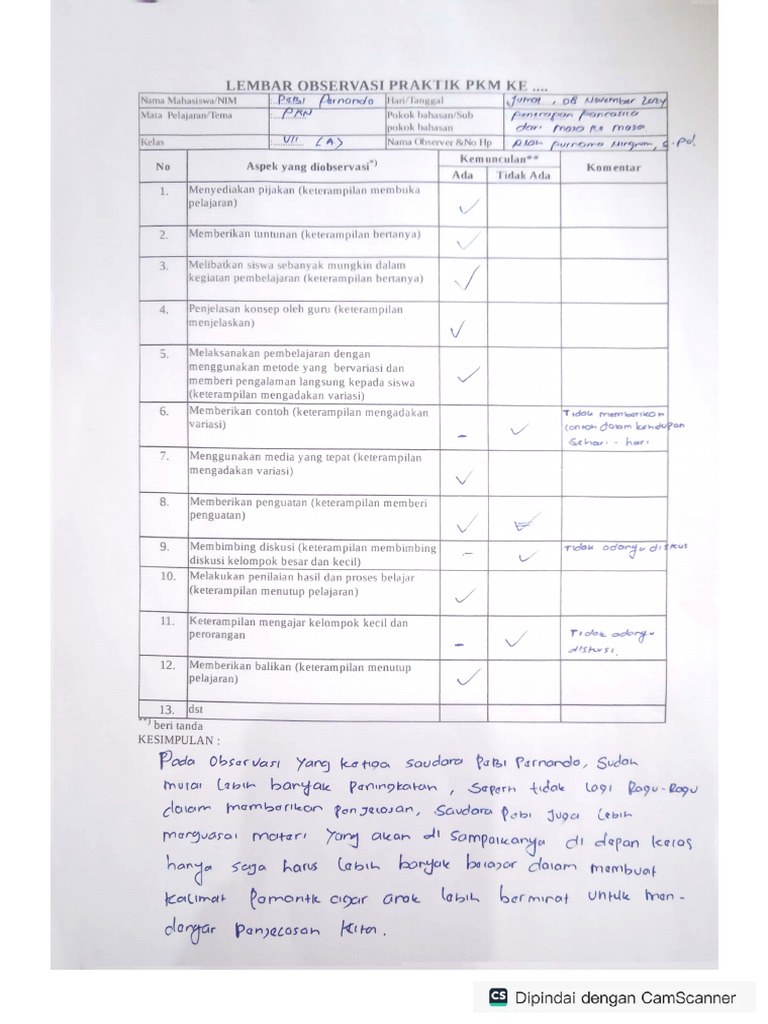 LEMBAR OBSERVASI PRAKTIK PKM KE ....
Nama Mahasiswa/NIM : Pebi Pernando Hari/Tanggal Jumat, 08 November 2024
Mata Pelajaran/Tema : PKN Pokok bahasan/Sub pokok bahasan Penerapan Pancasila dari masa ke masa
Kelas : VII (A) Nama Observer &No Hp Purnama Ningrum, S.Pd.
No Aspek yang diobservasi*) Kemunculan** Komentar
Ada Tidak Ada
1. Menyediakan pijakan (keterampilan membuka
pelajaran) ✓
2. Memberikan tuntunan (keterampilan bertanya) ✓
3. Melibatkan siswa sebanyak mungkin dalam
kegiatan pembelajaran (keterampilan bertanya) ✓
4. Penjelasan konsep oleh guru (keterampilan
menjelaskan) ✓
5. Melaksanakan pembelajaran dengan
menggunakan metode yang bervariasi dan
memberi pengalaman langsung kepada siswa
(keterampilan mengadakan variasi) ✓
6. Memberikan contoh (keterampilan mengadakan
variasi) - ✓ Tidak memberikan
contoh dalam
sehari - hari
7. Menggunakan media yang tepat (keterampilan
mengadakan variasi) ✓
8. Memberikan penguatan (keterampilan memberi
penguatan) ✓
9. Membimbing diskusi (keterampilan membimbing
diskusi kelompok besar dan kecil) - ✓ Tidak adanya diskus
10. Melakukan penilaian hasil dan proses belajar
(keterampilan menutup pelajaran) ✓
11. Keterampilan mengajar kelompok kecil dan
perorangan - ✓ Tidak adanya
diskusi.
12. Memberikan balikan (keterampilan menutup
pelajaran) ✓
13. dst
**) beri tanda
KESIMPULAN :
Pada Observasi yang ketiga saudara Pebi Pernando, Sudah
mulai lebih banyak Peningkatan, Seperti tidak lagi Ragu-Ragu
dalam memberikan penjelasan, Saudara Pebi Juga lebih
menguasai materi yang akan di Sampaikanya di depan kelas
hanya saja harus lebih banyak belajar dalam membuat
kalimat Pemantik agar anak lebih berminat untuk men-
dengar Penjelasan kita.
CS Dipindai dengan CamScanner